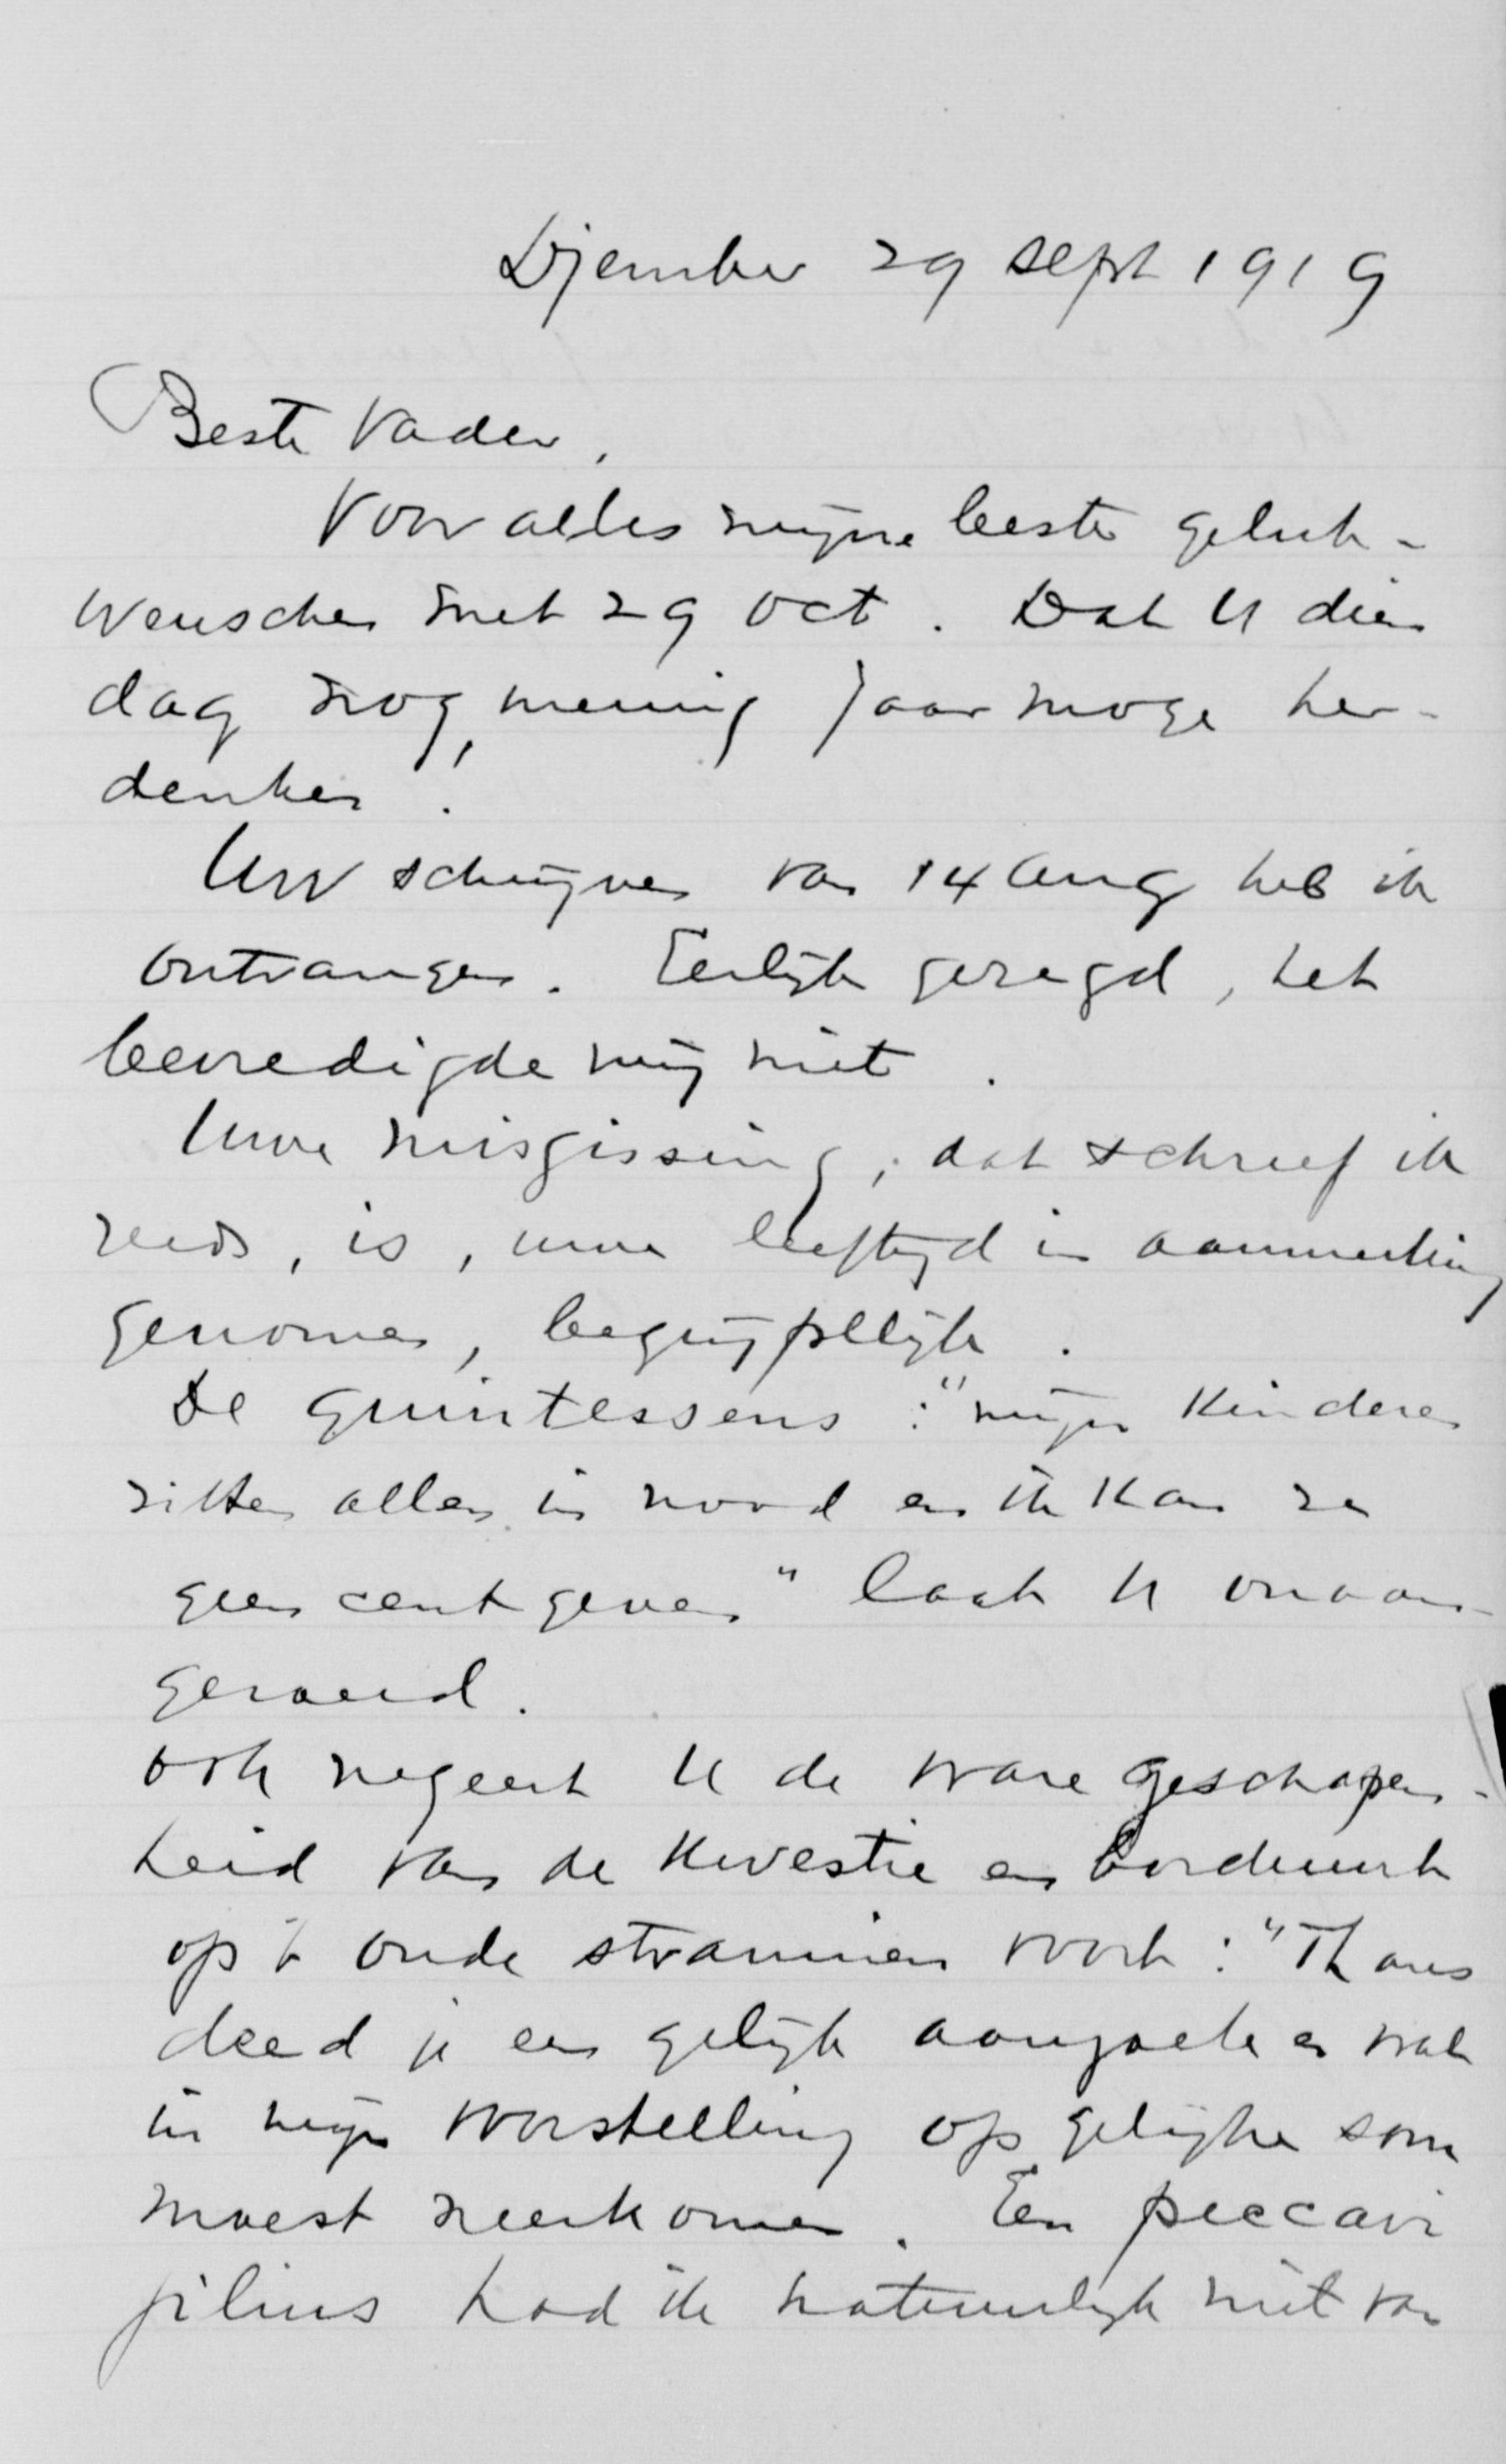 Djember 29 Sept 1919
Beste Vader,
Voor alles mijne beste geluk-
wenschen met 29 Oct. Dat U dien
dag nog menig jaar moge her-
denken.
Uw schrijven van 14 Aug heb ik
ontvangen. Eerlijk gezegd, het
bevredigde mij niet.
Uwe misgissing, dat schreef ik
reeds, is, uwe leeftijd in aanmerking
genomen, begrijpelijk.
De quintessens : "mijn kinderen
zitten allen in nood en ik kan ze
geen cent geven" laat U onaan-
geroerd.
Ook negeert U de ware geschapen-
heid van de kwestie en borduurt
op 't oude stramien voort : "Thans
deed je een gelijk aanzoek en wat
in mijn voorstelling op gelijke som
moest neerkomen. Een peccavi
filius had ik natuurlijk niet van